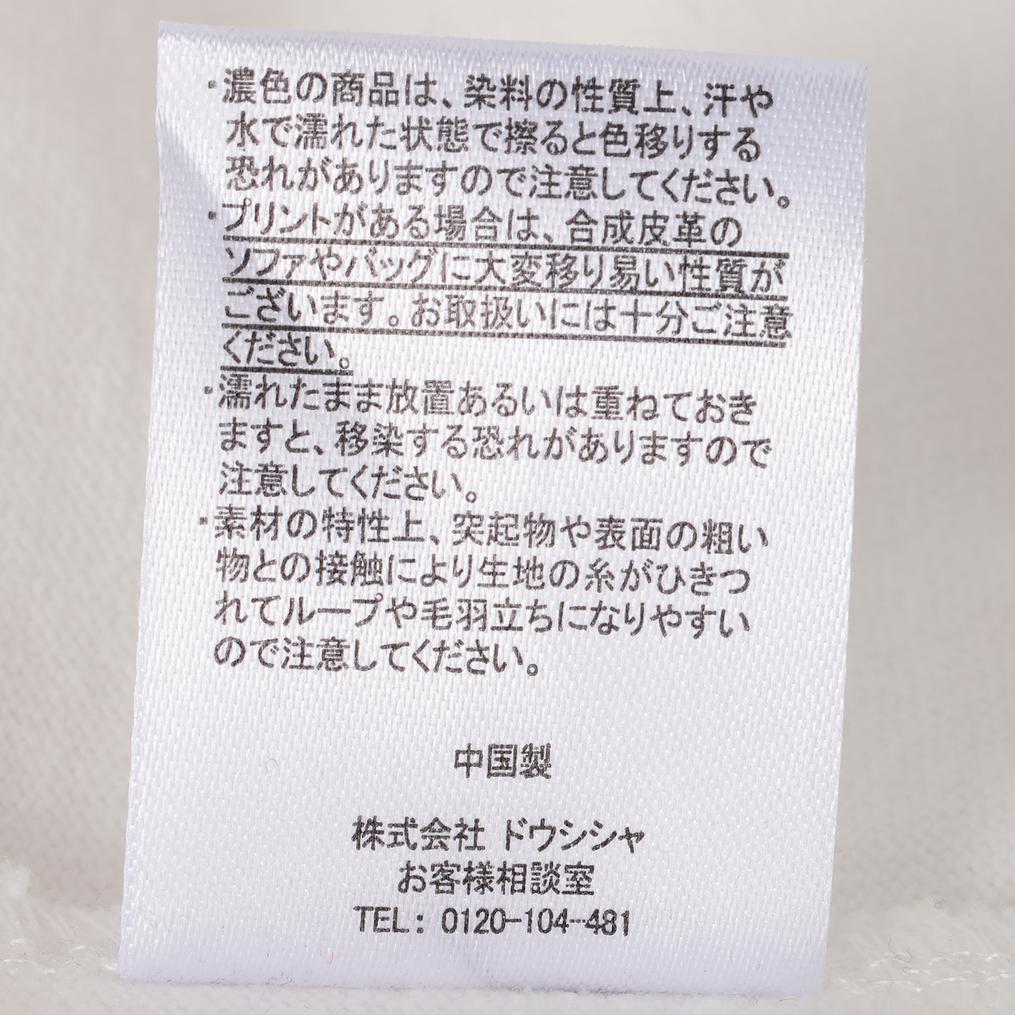 ・濃色の商品は、染料の性質上、汗や
水で濡れた状態で擦ると色移りする
恐れがありますので注意してください。
・プリントがある場合は、合成皮革の
ソファやバッグに大変移り易い性質が
ございます。お取扱いには十分ご注意
ください。
・濡れたまま放置あるいは重ねておき
ますと、移染する恐れがありますので
注意してください。
・素材の特性上、突起物や表面の粗い
物との接触により生地の糸がひきつ
れてループや毛羽立ちになりやすい
ので注意してください。
中国製
株式会社 ドウシシャ
お客様相談室
TEL: 0120-104-481